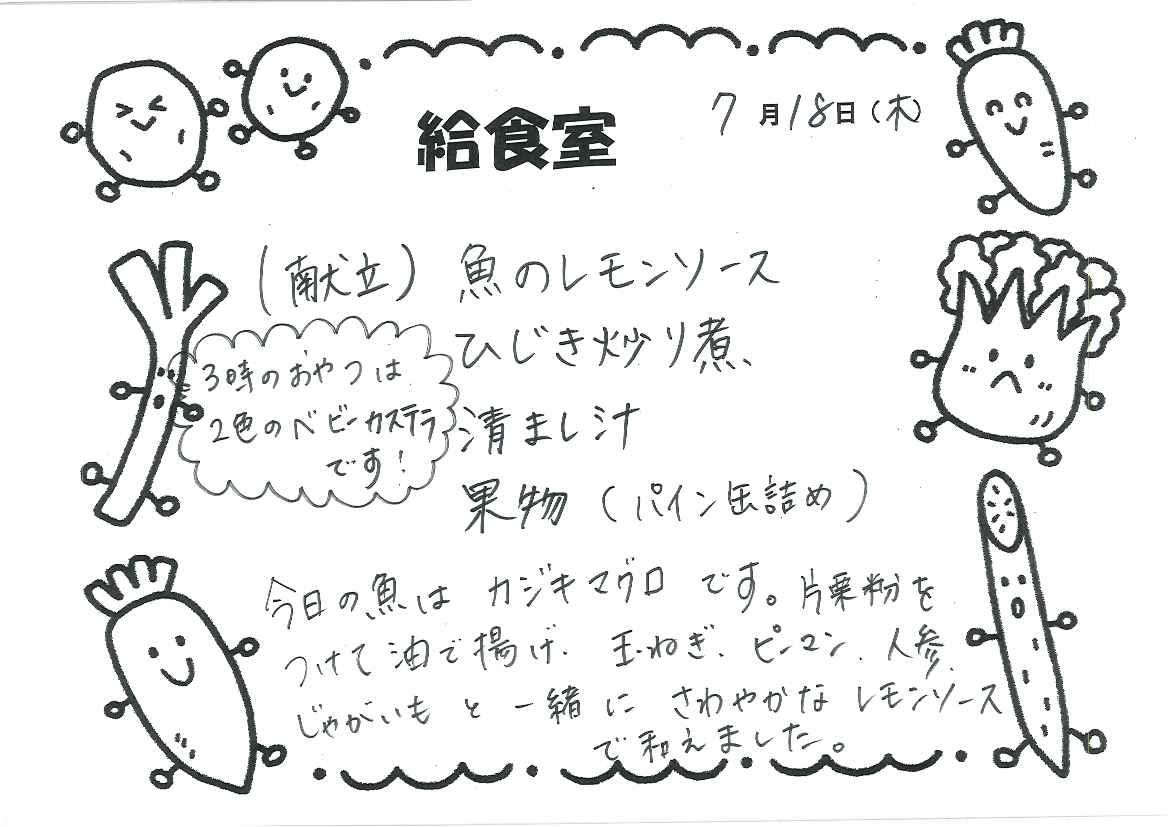 給食室
7月18日(木)
(献立) 魚のレモンソース
ひじき炒り煮
清まし汁
果物 (パイン缶詰め)
3時のおやつは
2色のベビーカステラ
です!
今日の魚は カジキマグロ です。片栗粉を
つけて油で揚げ、玉ねぎ、ピーマン、人参、
じゃがいも と 一緒に さわやかな レモンソース
で和えました。